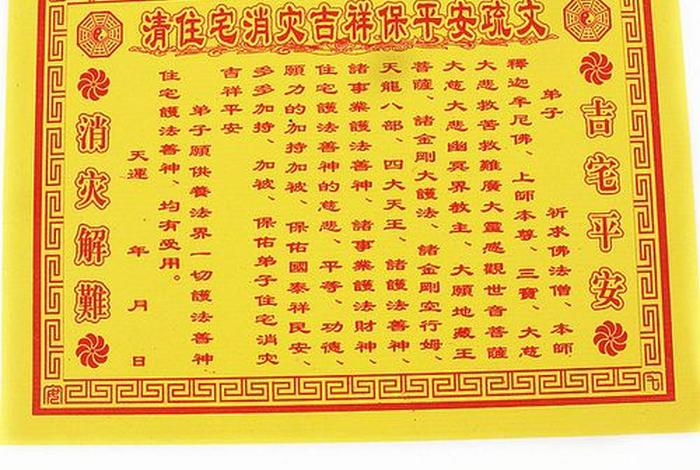 清住宅消灾吉祥保平安疏文
吉宅平安
弟子 祈求佛法僧、本師
釋迦牟尼佛、上師本尊、三寶、大慈
大悲救苦救難廣大靈感觀世音菩薩
大慈大悲幽冥界教主、大願地藏王
菩薩、諸金剛大護法、諸金剛空行姆、
天龍八部、四大天王、諸護法善神、
諸事業護法善神、諸事業護法財神、
住宅護法善神的慈悲、平等、功德、
願力的加持加被、保佑國泰祥民安、
多多加持、加被、保佑弟子住宅消灾
吉祥平安
弟子願供養法界一切護法善神
住宅護法善神、均有受用。
天運 年 月 日
消灾解難